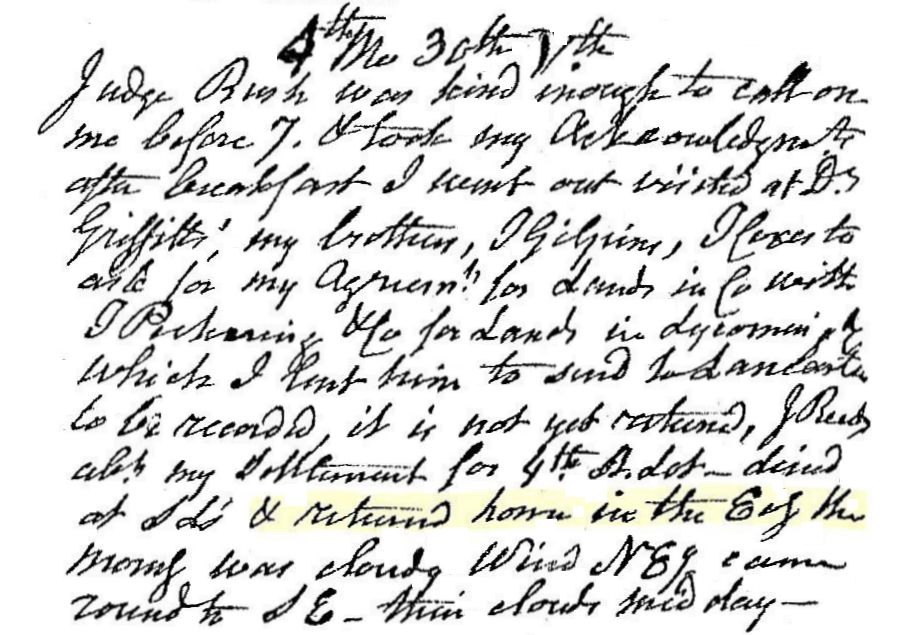 4th Mo 30th Vth
Judge Rush was kind inough to call on
me before 7. & took my Acknowledgmt
after breakfast I went out visited at Dr
Griffitts', my brothers, J Gilpins, J Coxes to
ask for my Agreemts for Lands in Co with
T Pickering & Co for Lands in Lycoming
which I lent him to send to Lancaster
to be recorded, it is not yet returned, J
abt my Settlement for 4th St. lot – dined
at & returned home in the Eg the
Morng was cloudy Wind NEy came
round to SE – thin clouds mid day –